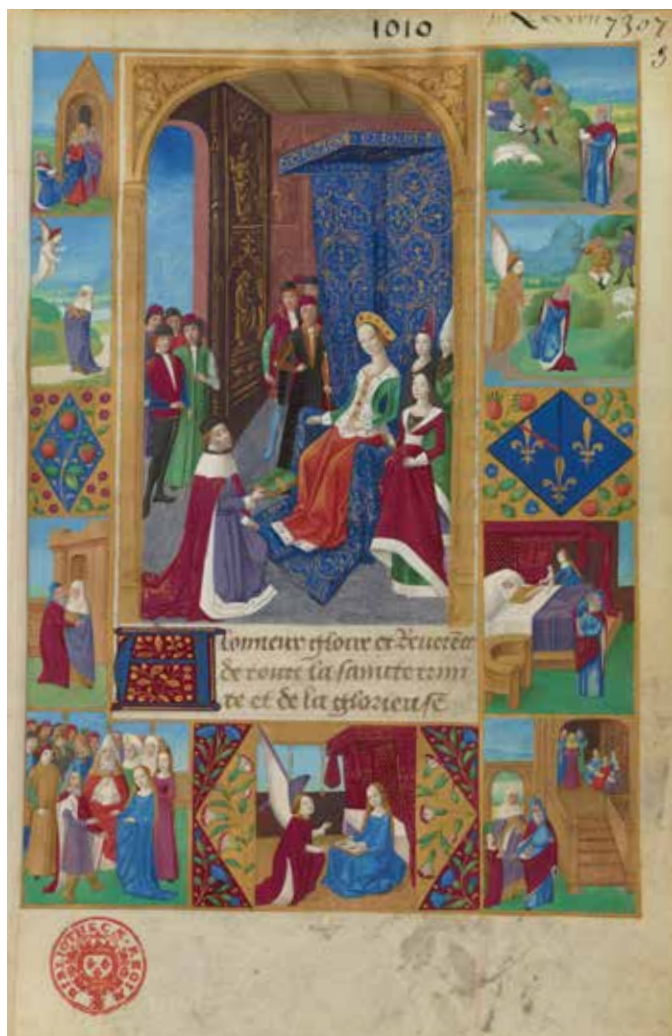 1010
7307
3
A lonneur gloire et Reuerēce
de toute la saincte trini
te et de la glorieuse
BIBLIOTHECÆ REGIÆ